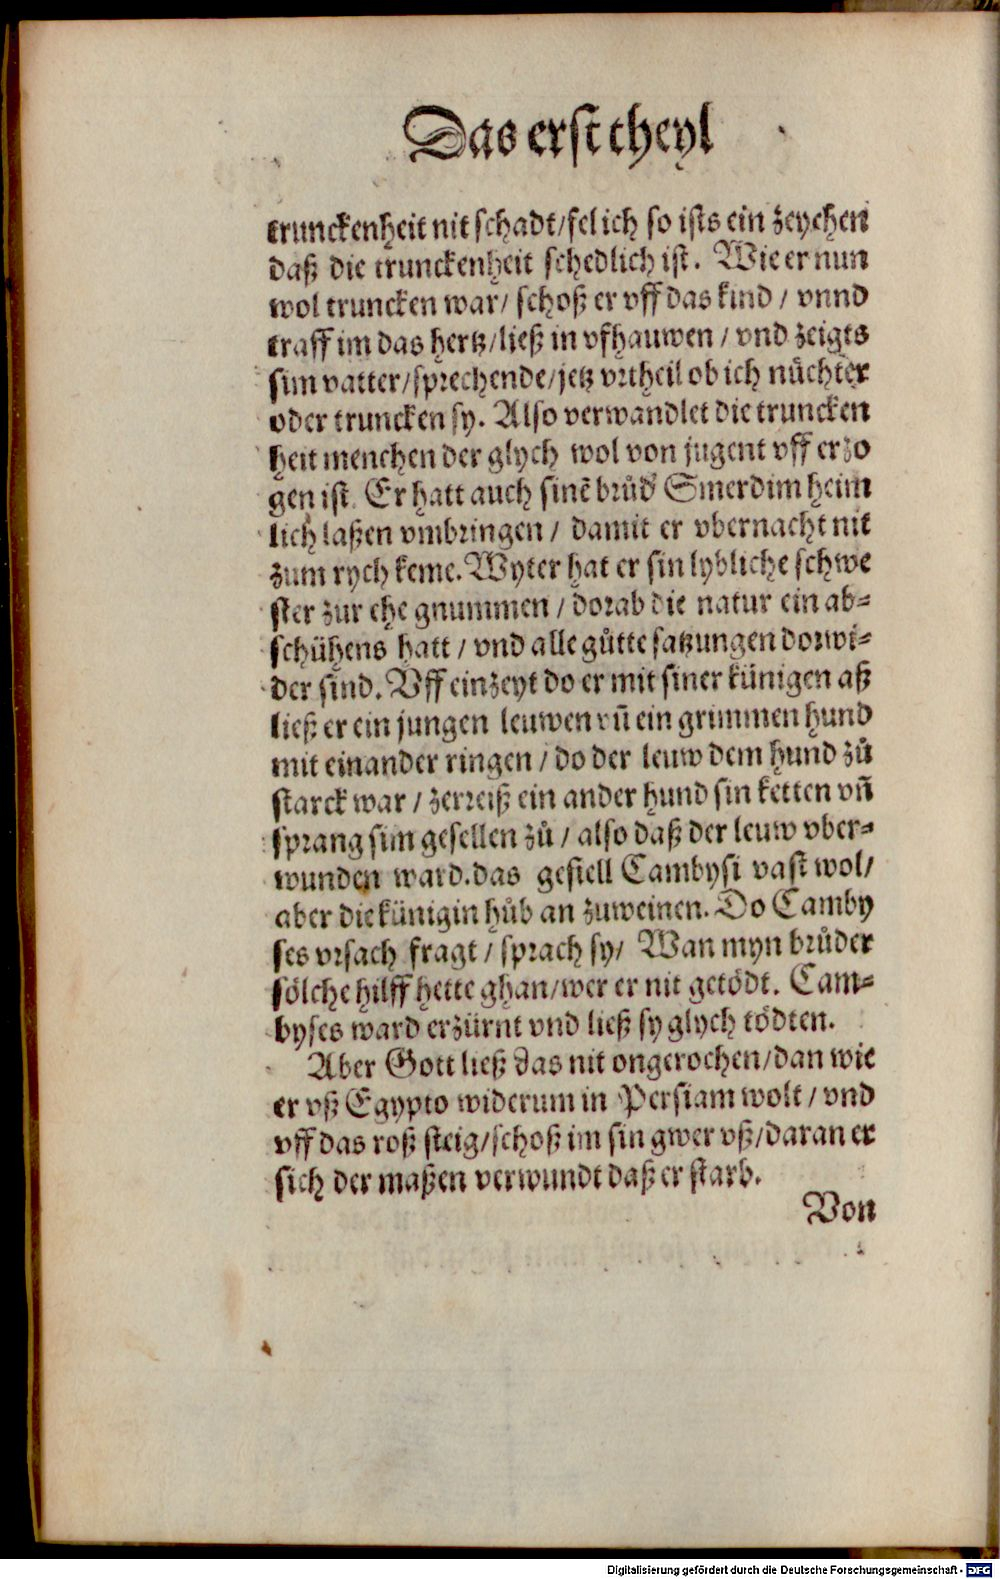 Das erst theyl
trunckenheit nit schadt/fel ich so ists ein zeychen
daß die trunckenheit schedlich ist. Wie er nun
wol truncken war/ schoß er vff das kind / vnnd
traff im das hertz/ließ in vfhauwen / vnd zeigts
sim vatter/sprechende/jetz vrtheil ob ich nüchter
oder truncken sy. Also verwandlet die truncken
heit menchen der glych wol von jugent vff erzo
gen ist. Er hatt auch sinē brůd' Smerdim heim
lich laßen vmbringen / damit er vbernacht nit
zum rych keme. Wyter hat er sin lybliche schwe
ster zur ehe gnummen / dorab die natur ein ab-
schühens hatt / vnd alle gůtte satzungen dorwi-
der sind. Vff ein zeyt do er mit siner künigen aß
ließ er ein jungen leuwen vn̄ ein grimmen hund
mit einander ringen / do der leuw dem hund zů
starck war / zerreiß ein ander hund sin ketten vn̄
sprang sim gesellen zů / also daß der leuw vber-
wunden ward. das gefiell Cambysi vast wol/
aber die künigin hůb an zuweinen. Do Camby
ses vrsach fragt / sprach sy/ Wan myn brůder
sölche hilff hette ghan/wer er nit getödt. Cam-
byses ward erzürnt vnd ließ sy glych tödten.
Aber Gott ließ das nit ongerochen/dan wie
er vß Egypto widerum in Persiam wolt / vnd
vff das roß steig/schoß im sin gwer vß/daran er
sich der maßen verwundt daß er starb.
Von
Digitalisierung gefördert durch die Deutsche Forschungsgemeinschaft - DFG